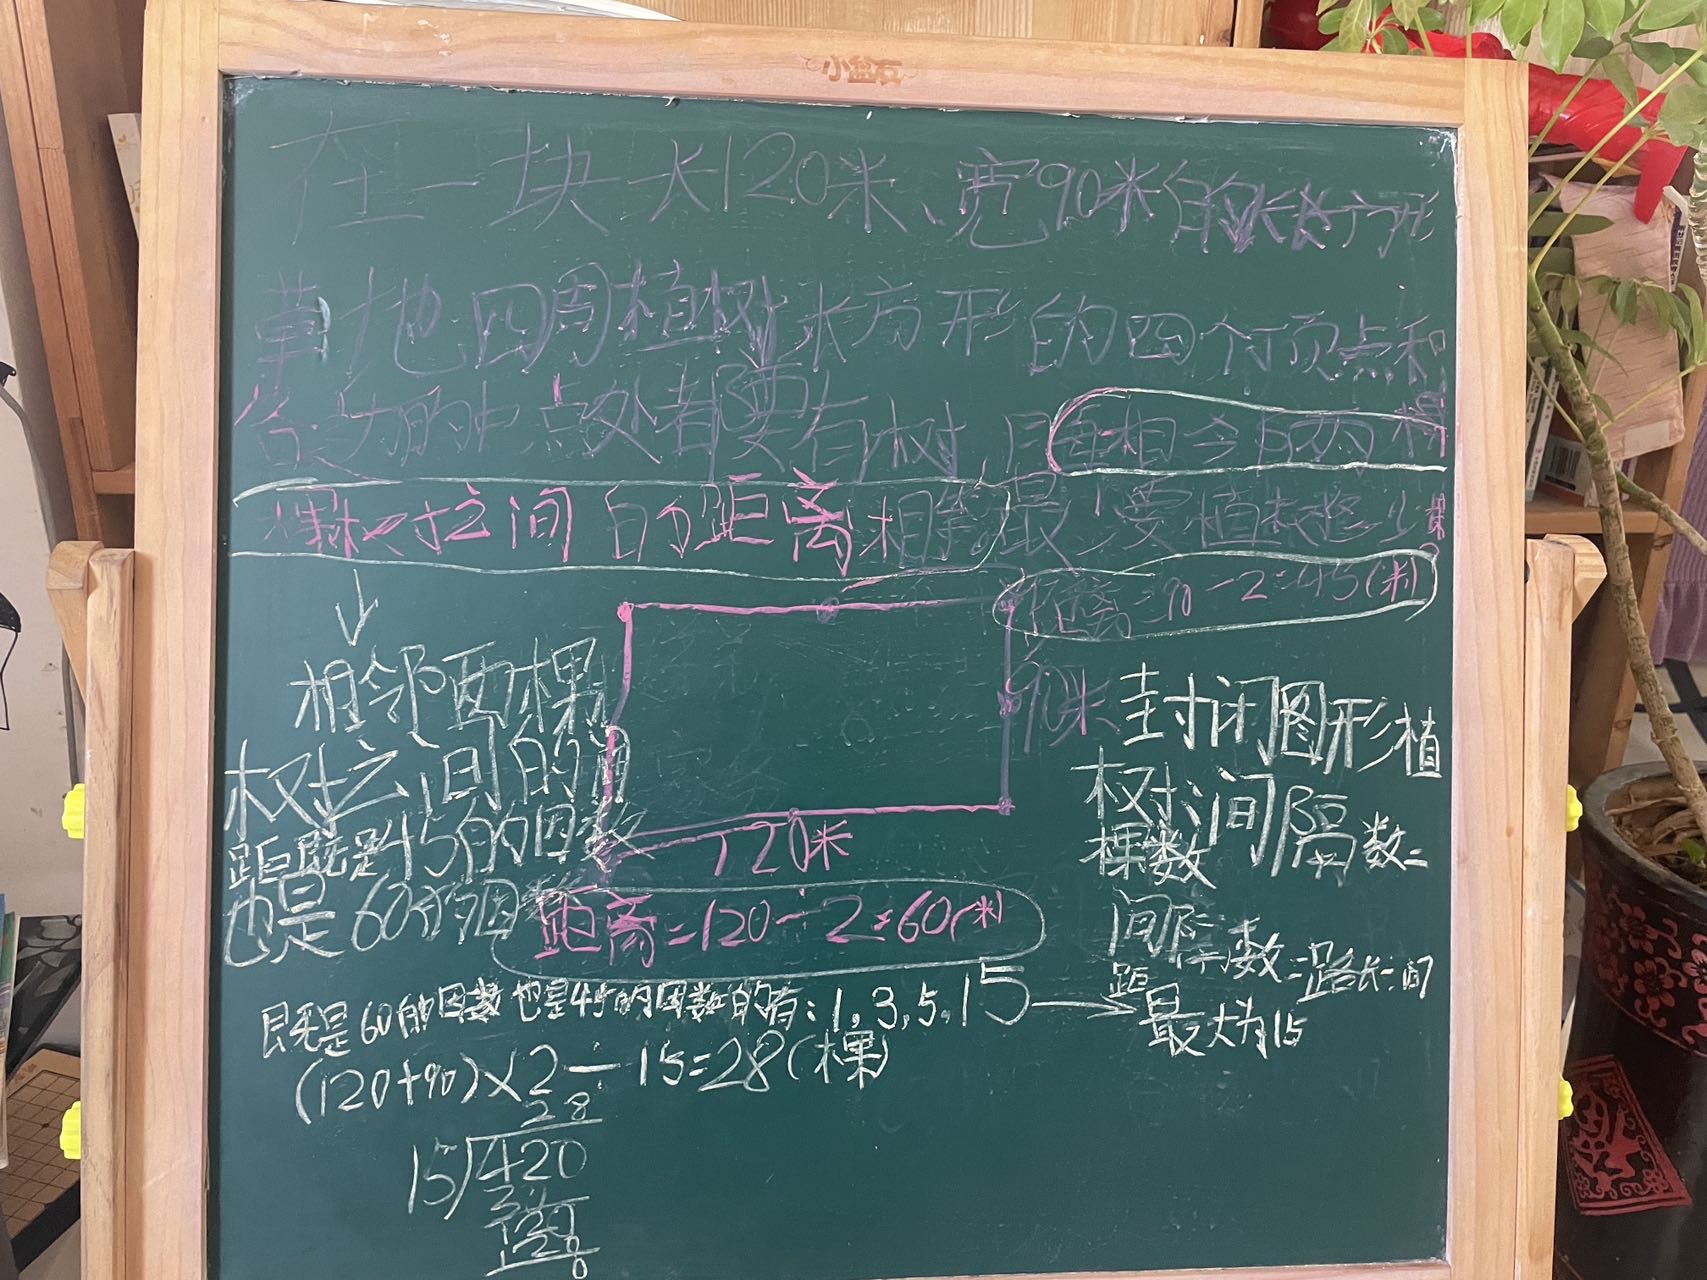 小盆友
在一块长120米、宽90米的长方形
草地四周植树长方形的四个顶点和
各边的中点处都要有树且每相邻两棵
棵树之间的距离相等最少要植树多少棵
距离=90÷2=45(米)
90米
120米
距离=120÷2=60(米)
相邻两棵
树之间的间
距既是45的因数
也是60的因数
封闭图形植
树:间隔数=
棵数
间隔数=路长÷间
距
既是60的因数也是45的因数的有:1,3,5,15
最大为15
(120+90)×2÷15=28(棵)
28
15)420
30
120
120
0